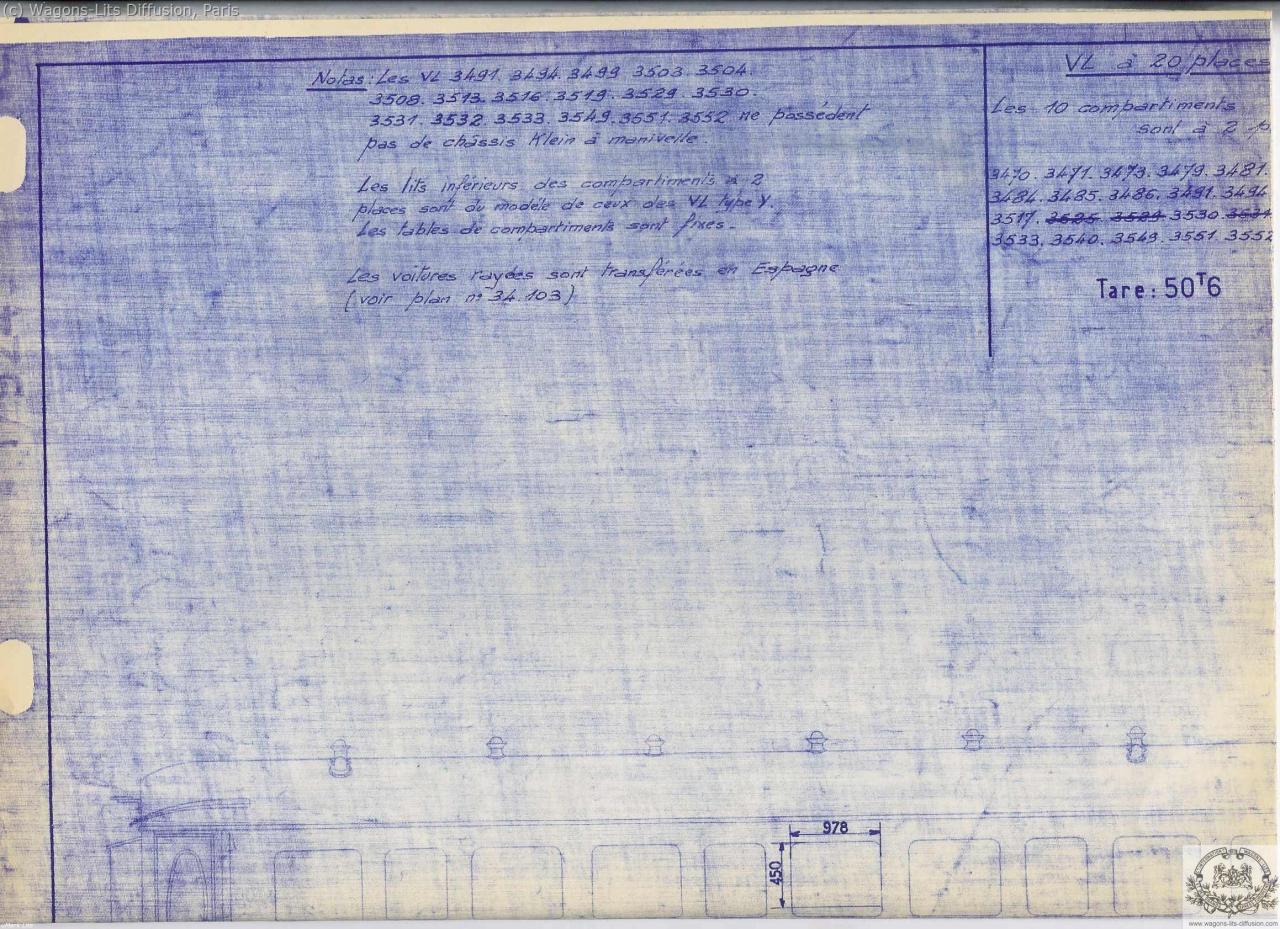 (c) Wagons-Lits Diffusion, Paris
Notas: Les VL 3491. 3494. 3499. 3503. 3504.
3508. 3513. 3516. 3519. 3529. 3530.
3531. 3532. 3533. 3549. 3551. 3552 ne possédent
pas de châssis Klein à manivelle.
Les lits inférieurs des compartiments à 2
places sont du modèle de ceux des VL type Y.
Les tables de compartiments sont fixes.
Les voitures rayées sont transférées en Espagne
(voir plan n° 34.103)
VL à 20 places
Les 10 compartiments
sont à 2 p
3470. 3471. 3473. 3479. 3481.
3484. 3485. 3486. 3491. 3494
3517. 3530.
3533. 3540. 3549. 3551. 3552
Tare: 50T6
978
450
www.wagons-lits-diffusion.com